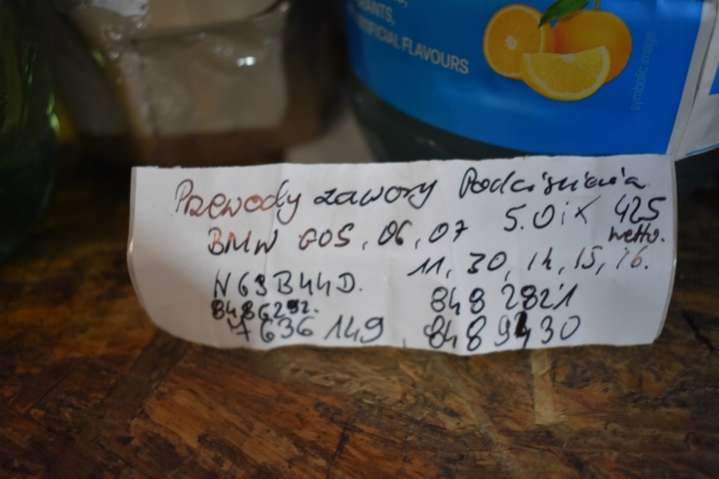 RANTS,
ARTIFICIAL FLAVOURS
symbolic image
Przewody zawory Podciśnienia
BMW G05, 06, 07 5.0iX 425
netto.
11, 30, 14, 15, 16.
N63B44D.
8486292. 848 2821
7636149, 8489430